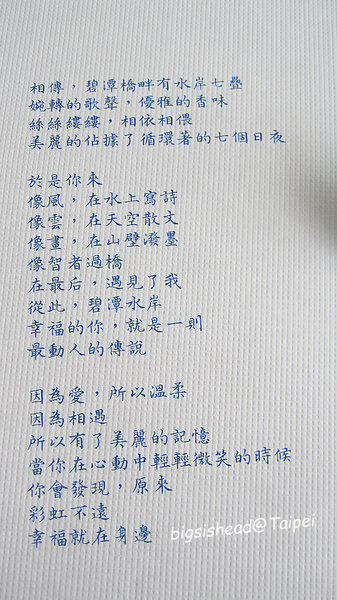 相傳，碧潭橋畔有水岸七疊
婉轉的歌聲，優雅的香味
絲絲縷縷，相依相偎
美麗的佔據了循環著的七個日夜
於是你來
像風，在水上寫詩
像雲，在天空散文
像畫，在山壁潑墨
像智者過橋
在最后，遇見了我
從此，碧潭水岸
幸福的你，就是一則
最動人的傳說
因為愛，所以溫柔
因為相遇
所以有了美麗的記憶
當你在心動中輕輕微笑的時候
你會發現，原來
彩虹不遠
幸福就在身邊
bigsishead@Taipei